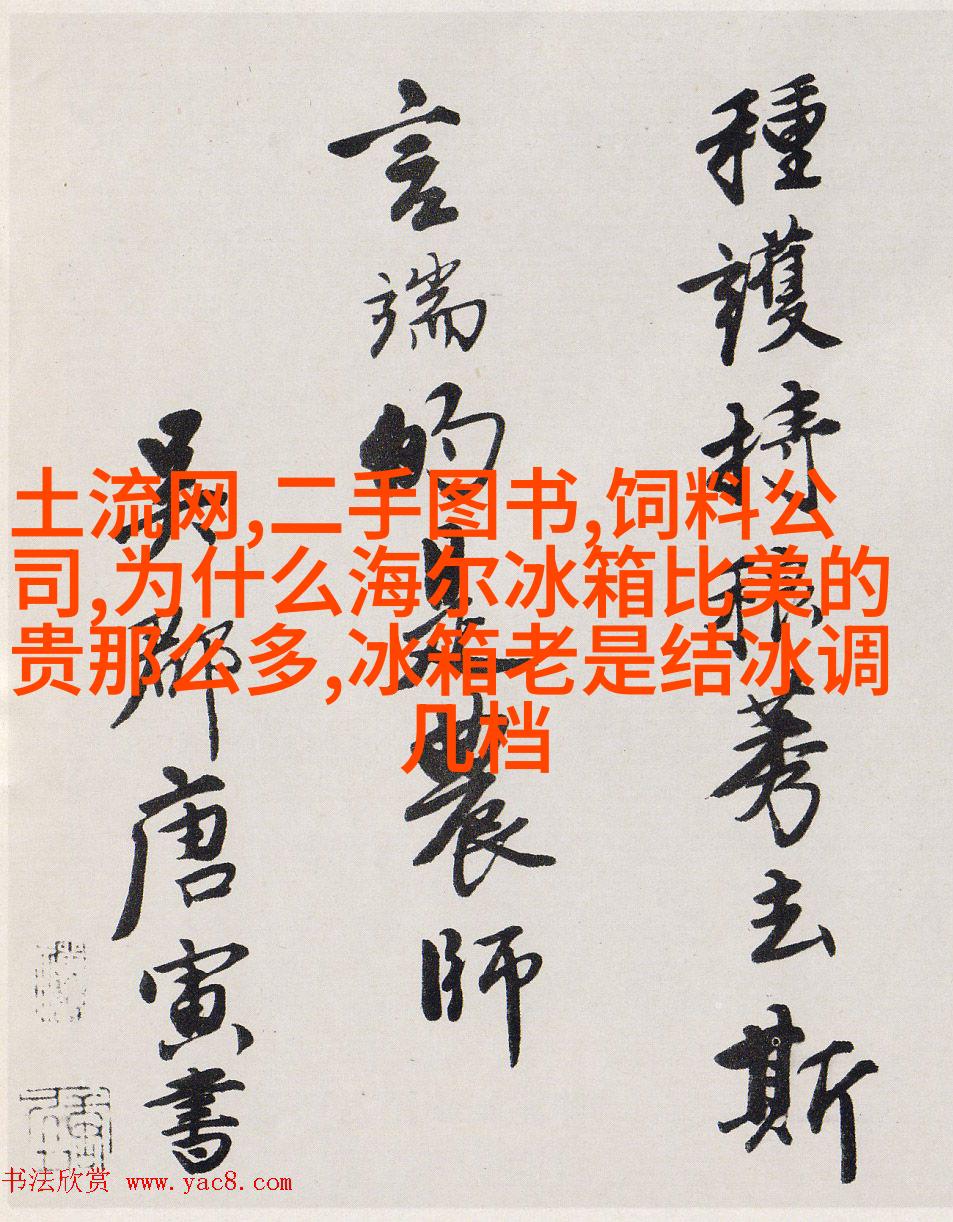 種護持稂莠去斯
言端的是農師
吳郡唐寅書
土流网,二手图书,饲料公
司,为什么海尔冰箱比美的
贵那么多,冰箱老是结冰调
几档
书法欣赏 www.yac8.com